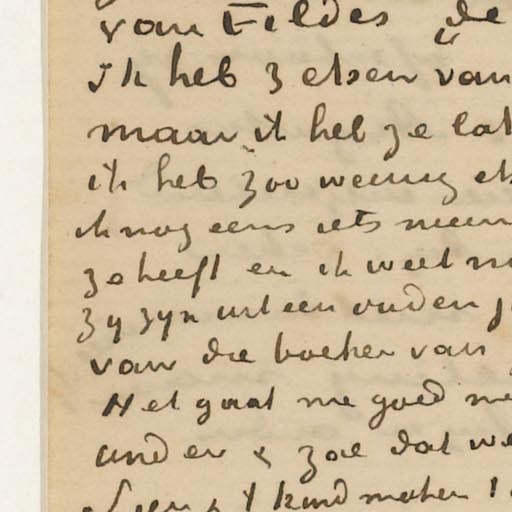 van Fildes „de
ik heb 3 etsen van
maar ik heb ze lat
ik heb zoo weinig ets
ik nog eens iets
ze heeft en ik weet ni
zy zyn uit een ouden
van die boeken van
Het gaat me goed me
ander & zal dat we
't kind maken !